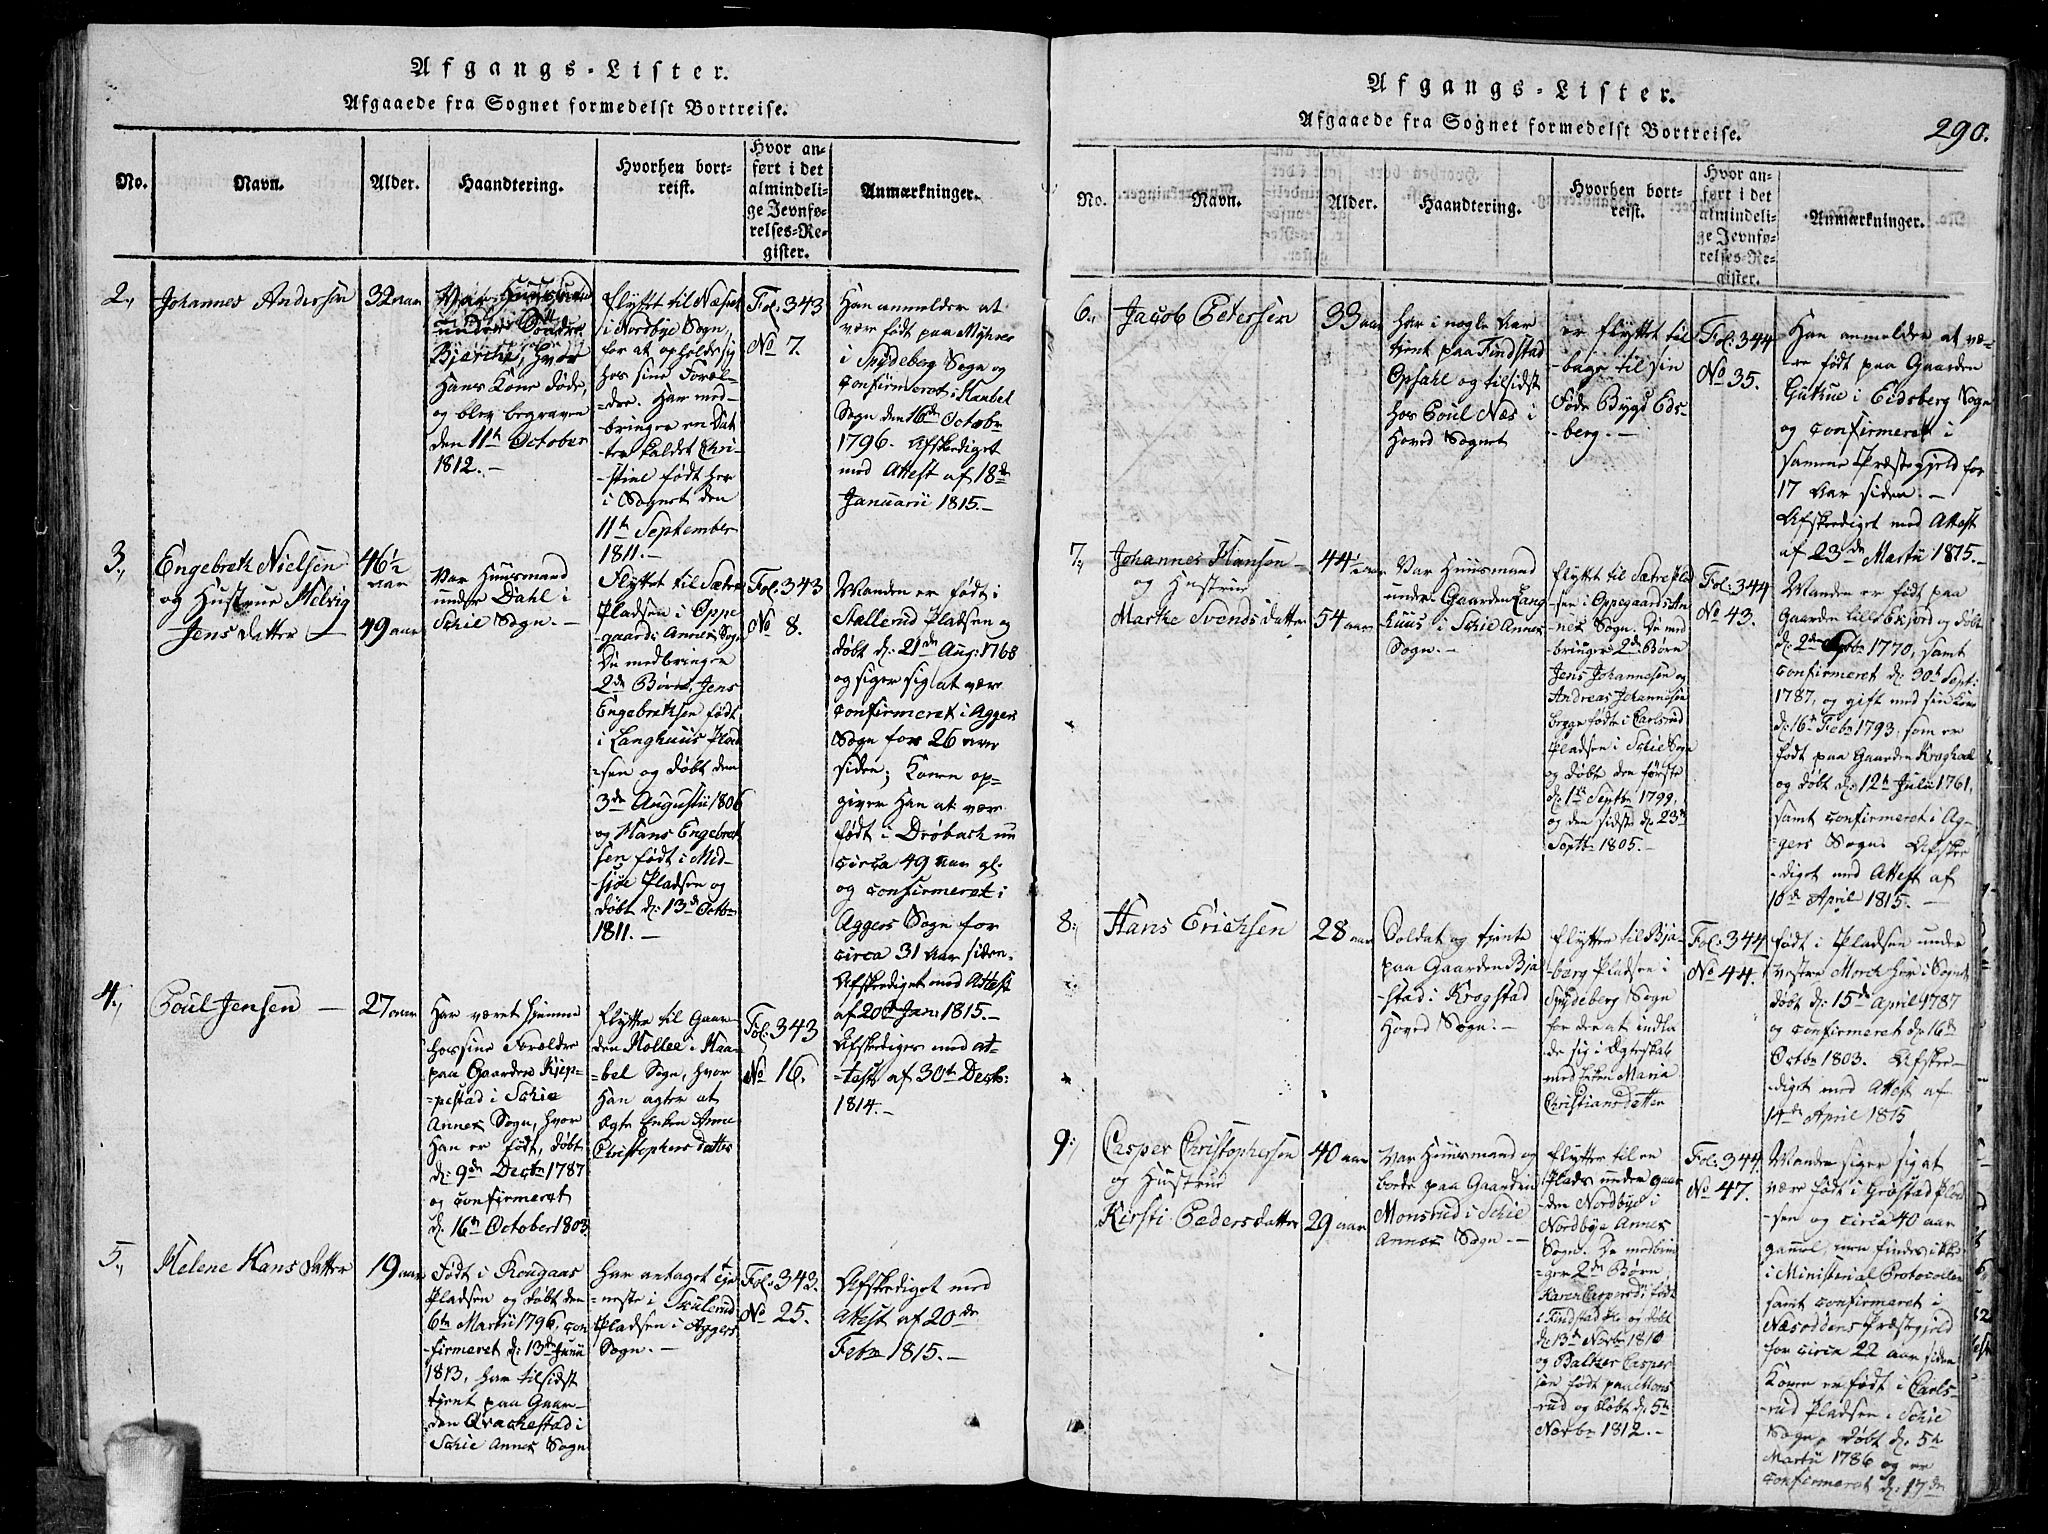 Afgangs-Lister.
Afgaaede fra Sognet formedelst Bortreise.
No.
Navn.
Alder.
Haandtering.
Hvorhen bort-
reist.
Hvor an-
ført i det
almindeli-
ge Jevnfø-
relses-Re-
gister.
Anmærkninger.
2.,
Johannes Andersen
32 aar
Var Huusmand
under Søndre
Bjerche, hvor
Hans Kone døde,
og blev begraven
den 11th October
1812.-
flyttet til Næset
i Nordbye Sogn,
for at opholde sig
hos sine Foræl-
-dre. Han med-
bringer en Dat
ter kaldet Chri-
-stine født her
i Sognet den
11th September
1811.-
Fol. 343
No 7.
Han anmelder at
være født paa Myhrer
i Spydeberg Sogn og
confirmeret i Haabøl
Sogn den 16de Octobr
1796. Afskediget
med Attest af 18de
Januarii 1815.-
3.,
Engebreth Nielsen
og Hustrue Helvig
Jens datter -
46½
aar
49 aar
Var Huusmand
under Dahl i
Schie Sogn.-
Flyttet til Sætre
Pladsen i Oppe-
-gaards Annex Sogn
De medbringer
2de Børn, Jens
Engebrethsen født
i Langhuus Plad
-sen og døbt den
3de Augustii 1806
og Hans Engebret
sen født i Mid-
sjøe Pladsen og
døbt d: 13de Octbr
1811.-
Fol. 343
No 8.
Manden er født i
Stallerud Pladsen og
døbt d: 21de Aug: 1768
og siger sig at være
confirmeret i Agger
Sogn for 26 aar
siden; Konen op-
giver Han at være
født i Drøbach nu
circa 49 aar gl.
og confirmeret i
Aggers Sogn for
circa 31 aar siden.
Afskediget med Attest
af 20d Jan: 1815.-
4.,
Poul Jensen -
27 aar
Har været hjemme
hos sine Forældre
paa Gaarden Kjep-
-pestad i Schie
Annex Sogn, hvor
Han er født, døbt
d: 9de Decbr 1787
og confirmeret
d: 16th October 1803.
flytter til Gaar
den Mollee i Haa-
-bel Sogn, hvor
Han agter at
ægte Enken Anne
Christophers datter
Fol. 343
No 16.
Afskediges med at-
-test af 30th Decb:
1814.-
5.,
Helene Hans datter
19 aar
Født i Kougaas
Pladsen og døbt den
6th Martii 1796, con
firmeret d: 13de Junii
1813, har tilsidst
tjent paa Gaar-
den Qvachestad i
Schie Annex Sogn
har antaget tje
-neste i Skulerud
Pladsen i Aggers
Sogn.-
Fol. 343.
No 25.
Afskediget med
Attest af 20de
Febr 1815.-
Afgangs-Lister.
Afgaaede fra Sognet formedelst Bortreise.
290.
No.
Navn.
Alder.
Haandtering.
Hvorhen bort-
reist.
Hvor an-
ført i det
almindeli-
ge Jevnfø-
relses-Re-
gister.
Anmærkninger.
6.,
Jacob Pedersen
33 aar
Har i nogle Aar
tjent paa Findstad
Opsahl og tilsidst
hos Poul Næs i
Hoved Sognet
er flyttet til
bage til sin
Føde Bygd Eds-
-berg.-
Fol. 344
No 35.
Han anmelder at væ-
re født paa Gaarden
Gutue i Eidsberg Sogn
og confirmeret i
samme Præstegjeld for
17 Aar siden.-
Afskediget med Attest
af 23de Martii 1815.-
7.,
Johannes Hansen -
og Hustrue
Marthe Svends datter
44½ aar
54 aar
Var Huusmand
under Gaarden Lang
huus i Schie Annex
Sogn.-
flyttet til Sætre Plad
-sen i Oppegaards An-
nex Sogn. De med
bringer 2de Børn
Jens Johannesen og
Andreas Johannesen
begge født i Carlsrud
Pladsen i Schie Sogn
og døbt den første
d: 1te Septbr 1799,
og den sidste d: 23de
Septbr 1805.-
Fol. 344
No 43.
Manden er født paa
Gaarden lille Ekjord og døbt
d: 2de Octbr 1770, samt
confirmeret d: 30th Sept:
1787, og gift med sin Kone
d: 16th Febr 1793, som er
født paa Gaarden Kroghoel
og døbt d: 12th Julii 1761,
samt confirmeret i Ag-
gers Sogn. Afske
-diget med Attest af
10de April 1815.-
8.,
Hans Erichsen
28 aar
Soldat og tjente
paa Gaarden Bja
-stad i Krogstad
Hoved Sogn.-
flytter til Bja-
berg Pladsen i
Spydeberg Sogn
for der at indla
de sig i Ægteskab
med Enken Maria
Christiansdatter
Fol. 344.
No 44.
født i Pladsen under
vestre Morch her i Sognet
døbt d: 15de April 1787
og confirmeret d: 16th
Octbr 1803. Afske-
-diget med Attest af
14de April 1815
9.,
Casper Christophersen
og Hustrue
Kirsti Peders datter
40 aar
29 aar
Var Huusmand og
boede paa Gaarden
Monsrud i Schie
Annex Sogn.-
flytter til en
Plads under Gaar
den Nordbye i
Nordbye Annex
Sogn. De medbrin
-ger 2de Børn
Karen Caspersd: født
i Findstad Pl. og døbt
d: 13de Novbr 1810
og Baltzer Casper
sen født paa Mons
rud og døbt d: 5th
Novbr 1812.-
Fol. 344.
No 47.
Manden siger sig at
være født i Grøstad Plad
-sen og circa 40 aar
gammel, men findes ikke
i Ministerial Protocollen
samt confirmeret i
Næsoddens Præstegjeld
for circa 22 aar siden
Konen er født i Carls-
rud Pladsen i Schie
Sogn, døbt d: 5th
Martii 1786 og er
confirmeret d: 17de